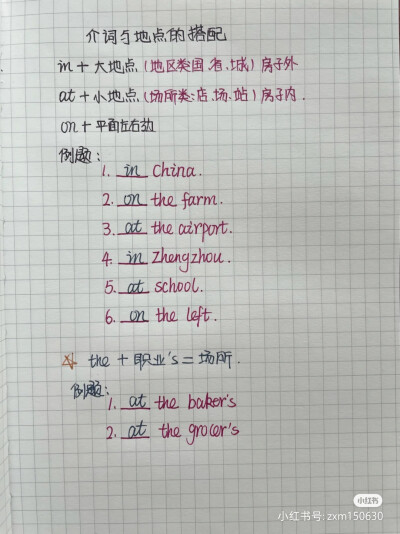 介词与地点的搭配
in + 大地点 (地区类:国.省.城) 房子外
at + 小地点 (场所类:店.场.站) 房子内.
on + 平面左右
例题:
1. in China.
2. on the farm.
3. at the airport.
4. in Zhengzhou.
5. at school.
6. on the left.
the + 职业's = 场所.
例题:
1. at the baker's
2. at the grocer's
小红书
小红书号: zxm150630